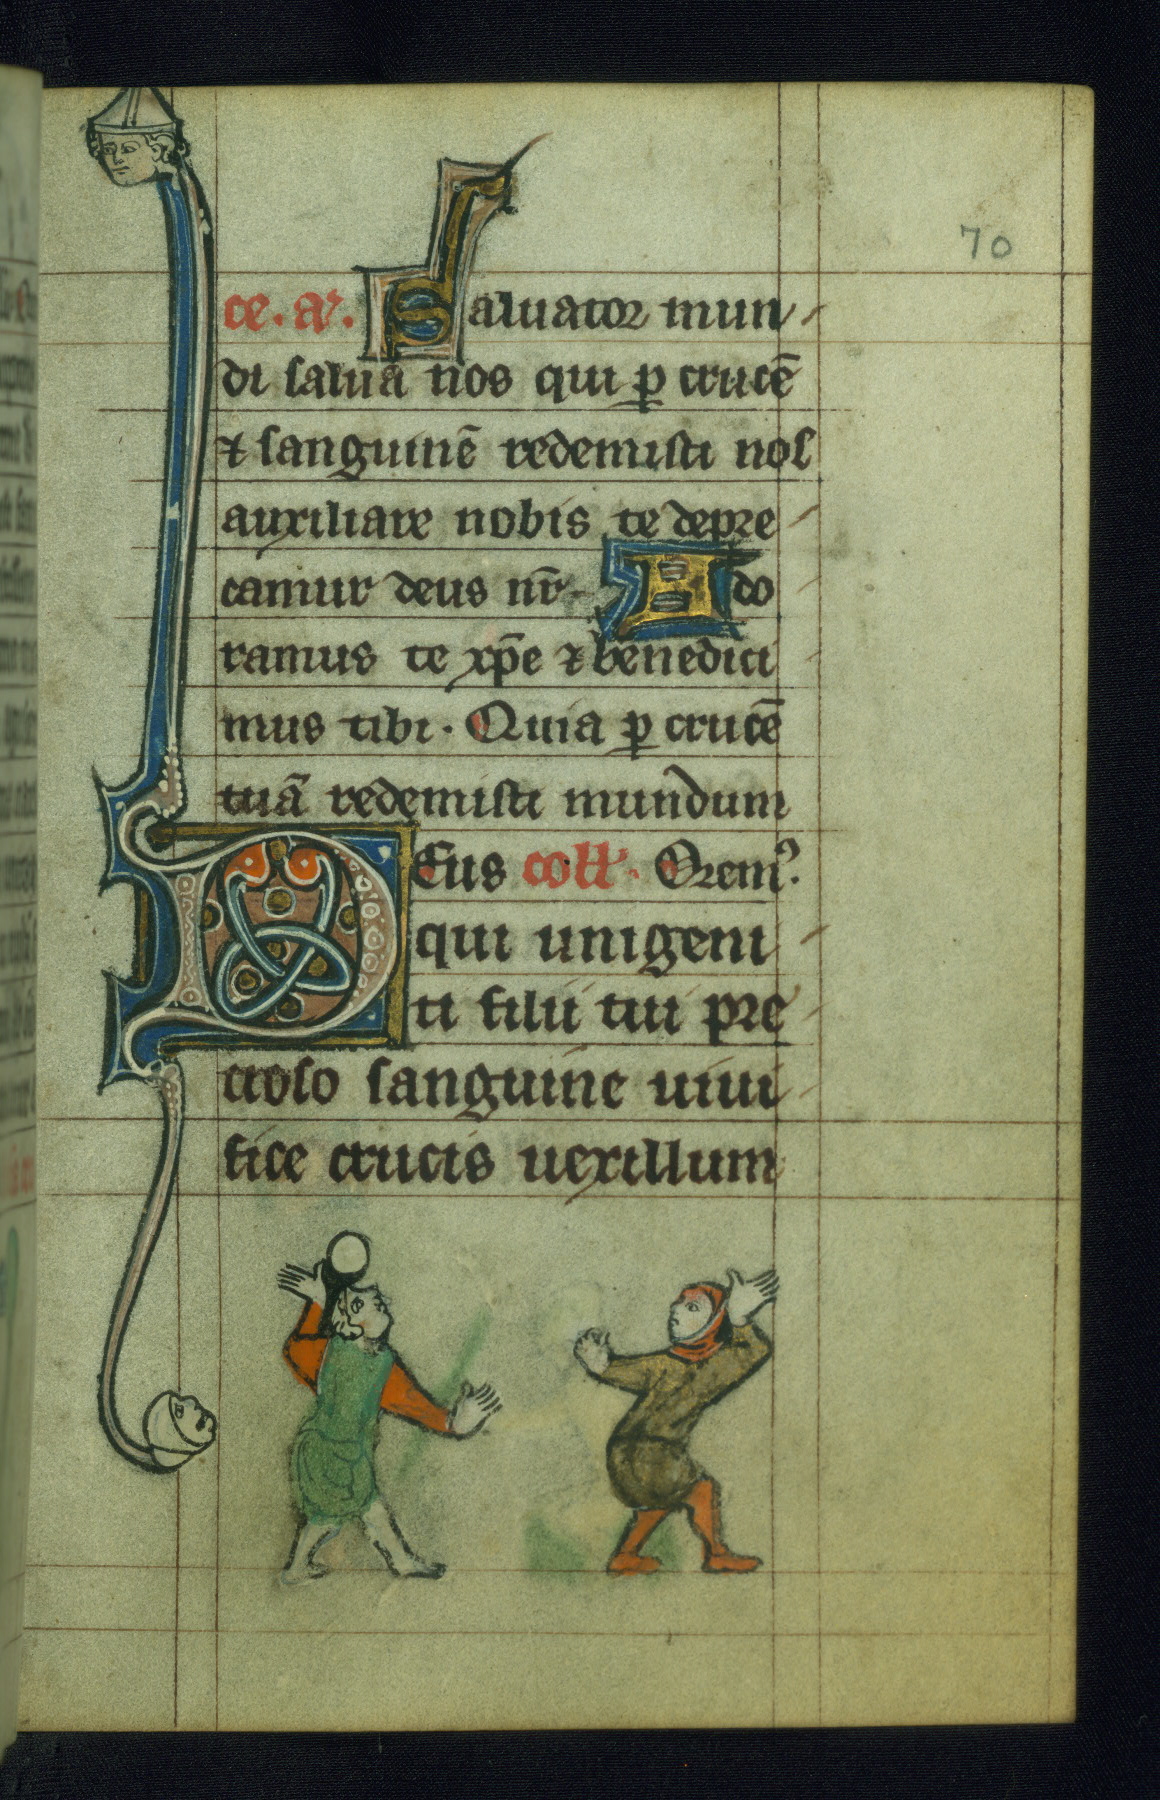 70
ce. a͛. Saluator mun
di salua nos qui ꝑ crucē
⁊ sanguinē redemisti nos
auxiliare nobis te depre
camur deus nr̄. Ado
ramus te xp̄e ⁊ benedici
mus tibi. Quia ꝑ crucē
tuā redemisti mundum
Deus coll͛. Oremꝰ.
qui unigeni
ti filii tui pre
cioso sanguine uiui
fice crucis uexillum